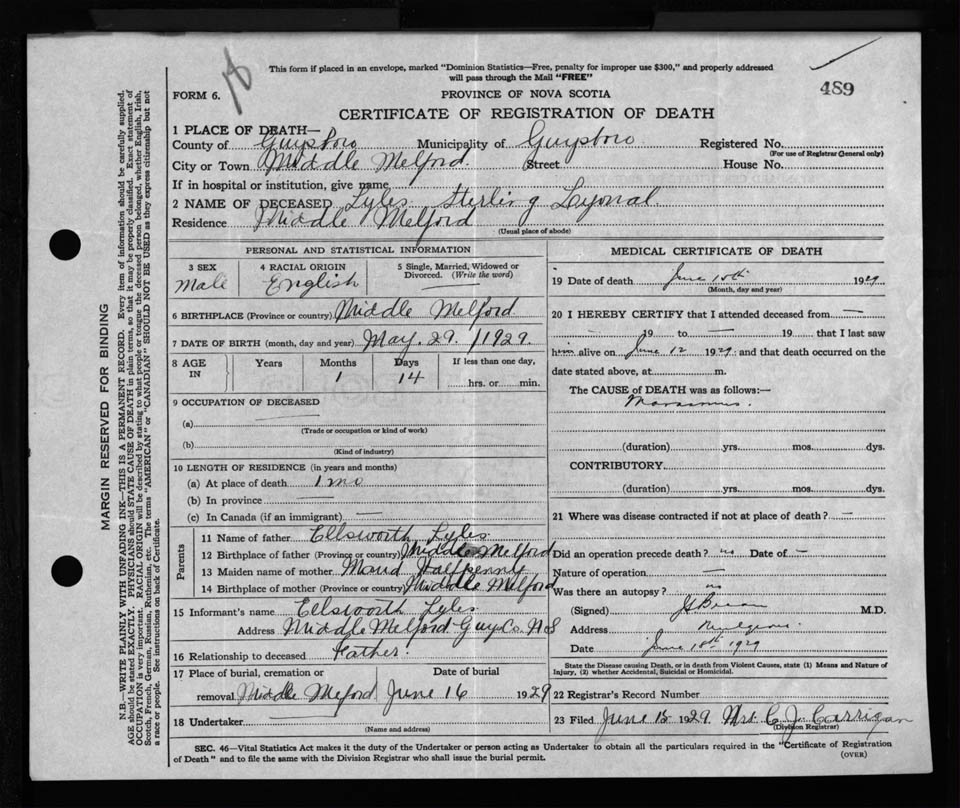 This form if placed in an envelope, marked "Dominion Statistics—Free, penalty for improper use $300," and properly addressed
will pass through the Mail "FREE"
489
FORM 6.
PROVINCE OF NOVA SCOTIA
CERTIFICATE OF REGISTRATION OF DEATH
1 PLACE OF DEATH—
County of Guysboro Municipality of Guysboro Registered No.
(For use of Registrar General only)
City or Town Middle Melford. (Street House No.
If in hospital or institution, give name
2 NAME OF DECEASED Lyles Sterling Lyonal.
Residence Middle Melford
(Usual place of abode)
PERSONAL AND STATISTICAL INFORMATION
3 SEX 4 RACIAL ORIGIN 5 Single, Married, Widowed or
Divorced. (Write the word)
Male English —
6 BIRTHPLACE (Province or country) Middle Melford.
7 DATE OF BIRTH (month, day and year) May. 29. 1929
8 AGE IN Years Months Days If less than one day,
1 14 hrs. or min.
9 OCCUPATION OF DECEASED
(a)
(Trade or occupation or kind of work)
(b)
(Kind of industry)
10 LENGTH OF RESIDENCE (in years and months)
(a) At place of death 1 mo
(b) In province —
(c) In Canada (if an immigrant) —
Parents
11 Name of father Ellsworth Lyles
12 Birthplace of father (Province or country) Middle Melford
13 Maiden name of mother Maud Halfpenny
14 Birthplace of mother (Province or country) Middle Melford
15 Informant's name Ellsworth Lyles
Address Middle Melford Guys Co. N S
16 Relationship to deceased Father.
17 Place of burial, cremation or Date of burial
removal Middle Meford June 16 1929
18 Undertaker
(Name and address)
MEDICAL CERTIFICATE OF DEATH
19 Date of death June 15th 1929
(Month, day and year)
20 I HEREBY CERTIFY that I attended deceased from —
— 19 to — 19 that I last saw
him alive on June 12 1929: and that death occurred on the
date stated above, at m.
The CAUSE of DEATH was as follows:—
Marasmus.
(duration) yrs. mos. dys.
CONTRIBUTORY
(duration) yrs. mos. dys.
21 Where was disease contracted if not at place of death? —
Did an operation precede death? no Date of —
Nature of operation —
Was there an autopsy? no
(Signed) M.D.
Address Mulgrave
Date June 18th 1929
State the Disease causing Death, or in death from Violent Causes, state (1) Means and Nature of
Injury, (2) whether Accidental, Suicidal or Homicidal.
22 Registrar's Record Number
23 Filed June 15 1929. Mrs C. J. Carrigan
(Division Registrar)
SEC. 46—Vital Statistics Act makes it the duty of the Undertaker or person acting as Undertaker to obtain all the particulars required in the "Certificate of Registration
of Death" and to file the same with the Division Registrar who shall issue the burial permit.
(OVER)
MARGIN RESERVED FOR BINDING
N.B.—WRITE PLAINLY WITH UNFADING INK—THIS IS A PERMANENT RECORD. Every item of information should be carefully supplied.
AGE should be stated EXACTLY. PHYSICIANS should STATE CAUSE OF DEATH in plain terms, so that it may be properly classified. Exact statement of
OCCUPATION is very important. RACIAL ORIGIN will be described by stating to what people or tongue the deceased person belonged, whether English, Irish,
Scotch, French, German, Russian, Ruthenian, etc. The terms "AMERICAN" or "CANADIAN" SHOULD NOT BE USED as they express citizenship but not
a race or people. See instructions on back of Certificate.